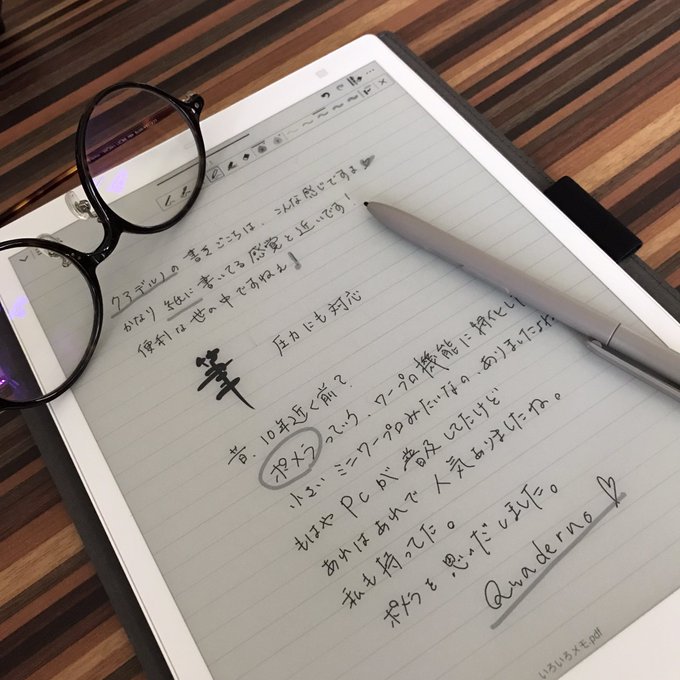 クアデルノの書きごこちは、こんな感じですよ♥
かなり紙に書いてる感覚と近いです!
便利な世の中ですねぇ!
筆 圧力にも対応
昔、10年近く前?
ポメラっていう、ワープロ機能に特化した
小さいミニワープロみたいなの、ありましたよね
もはやPCが普及してたけど
あれはあれで人気ありましたね。
私も持ってた。
ポメラを思いだしました。
Quaderno♡
いろいろメモ.pdf